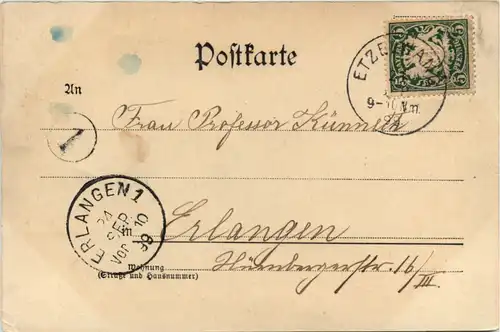 Postkarte
ETZE
9-10 Nm.
An
Frau Professor Künneth
1
ERLANGEN 1
24
SEP
10
Vor
Erlangen
Nürnbergerstr. 16/III
Wohnung
(Straße und Hausnummer)